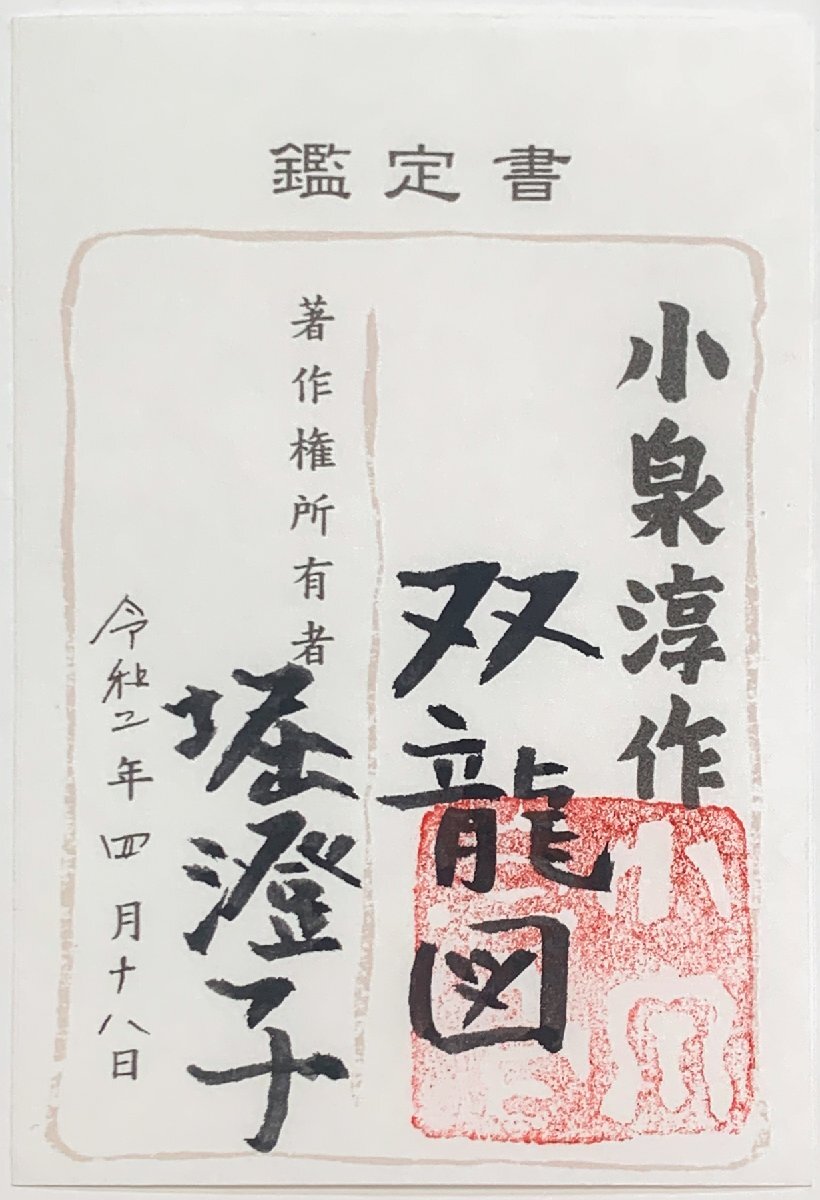 鑑定書
小泉淳作
双龍図
著作権所有者
堀澄子
令和二年四月十八日